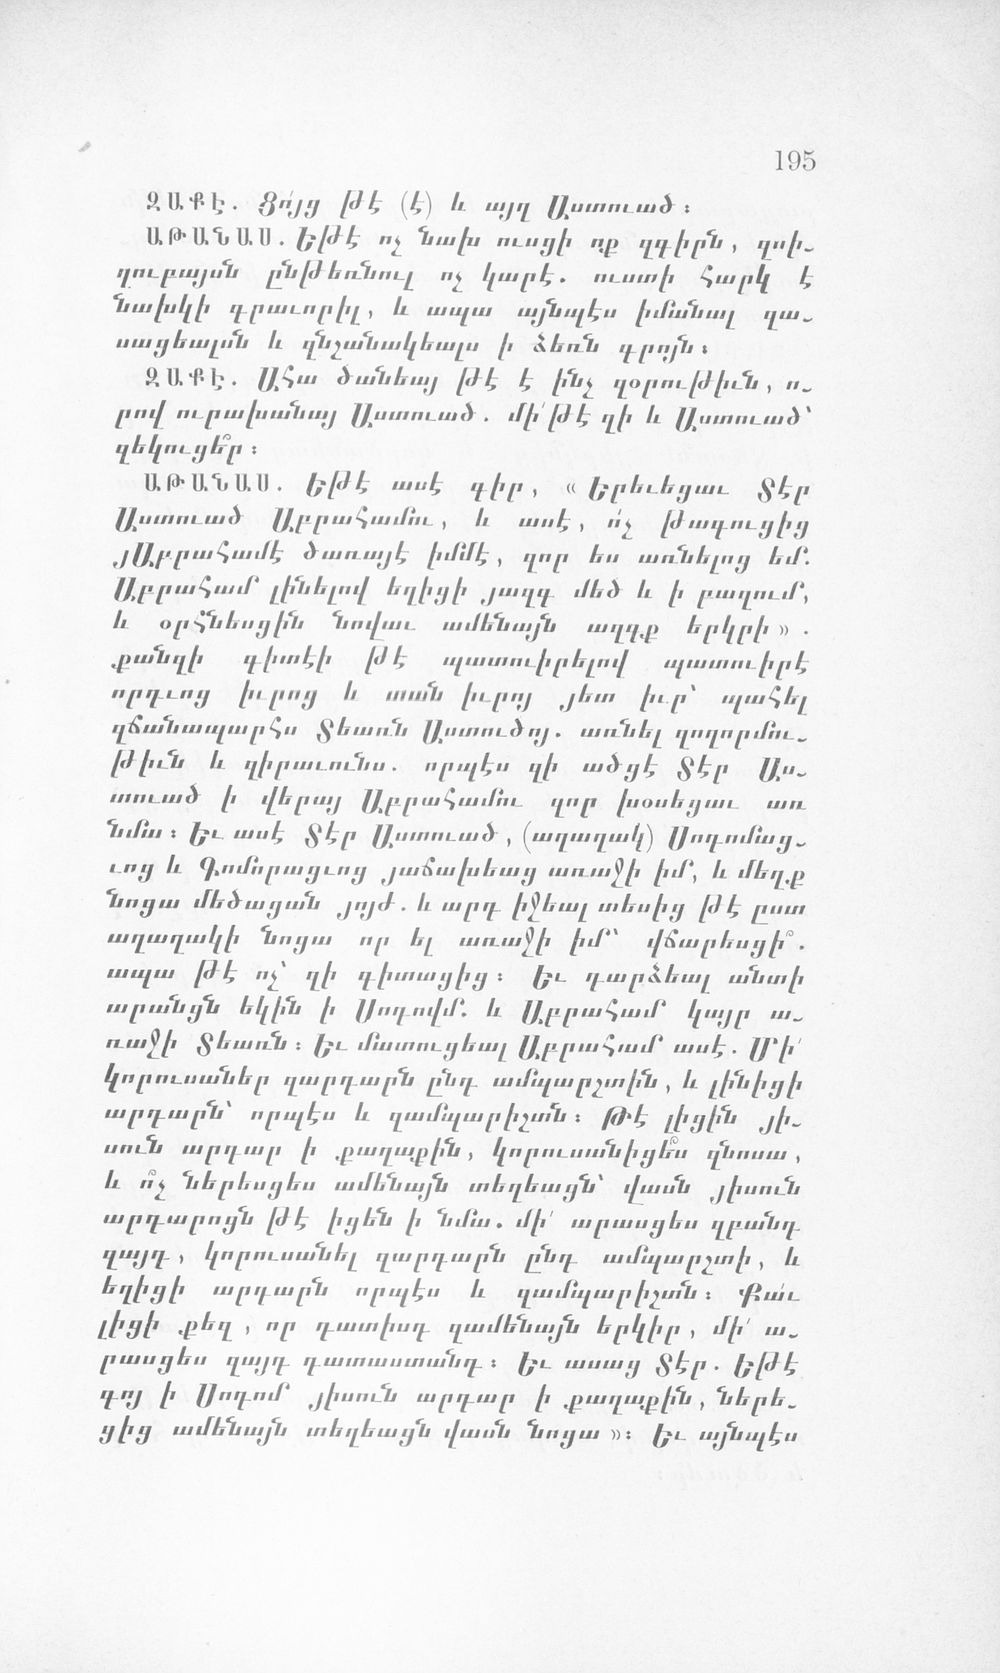 195
ԶԱՔԷ. Ցո՛յց թէ (է) և այղ Աստուած։
ԱԹԱՆԱՍ. Եթէ ոչ նախ ուսցի ոք զգիրն, զսի-
ղուբայսն ընթեռնուլ ոչ կարէ. ուստի հարկ է
նախկի գրաւորիլ, և ապա այնպէս իմանալ զա-
սացեալսն և զնշանակեալս ի ձեռն գրոյն։
ԶԱՔԷ. Ահա ծանեայ թէ է ինչ զօրութիւն, ո-
րով ուրախանայ Աստուած. մի՛ թէ զի և Աստուած՝
զեկուցե՞ր։
ԱԹԱՆԱՍ. Եթէ ասէ գիր, « Երեւեցաւ Տէր
Աստուած Աբրահամու, և ասէ, ո՛չ թագուցից
յԱբրահամէ ծառայէ իմմէ, զոր ես առնելոց եմ.
Աբրահամ լինելով եղիցի յազգ մեծ և ի բազում,
և օրհնեսցին նովաւ ամենայն ազգք երկրի».
քանզի գիտէի թէ պատուիրելով պատուիրէ
որդւոց իւրոց և տան իւրոյ յետ իւր՝ պահել
զճանապարհս Տեառն Աստուծոյ. առնել զողորմու-
թիւն և զիրաւունս. որպէս զի ածցէ Տէր Աս-
տուած ի վերայ Աբրահամու զոր խօսեցաւ առ
նմա։ Եւ ասէ Տէր Աստուած, (աղաղակ) Սոդոմաց-
ւոց և Գոմորացւոց յաճախեաց առաջի իմ, և մեղք
նոցա մեծացան յոյժ. և արդ իջեալ տեսից թէ ըստ
աղաղակի նոցա որ ել առաջի իմ՝ վճարեսցի՞.
ապա թէ ոչ՝ զի գիտացից։ Եւ դարձեալ անտի
արանցն եկին ի Սոդովմ. և Աբրահամ կայր ա-
ռաջի Տեառն։ Եւ մատուցեալ Աբրահամ ասէ. Մի՛
կորուսաներ զարդարն ընդ ամպարշտին, և լինիցի
արդարն՝ որպէս և զամպարիշտն։ Թէ լիցին յի-
սուն արդար ի քաղաքին, կորուսանիցե՞ս զնոսա,
և ո՞չ ներեսցես ամենայն տեղեացն՝ վասն յիսուն
արդարոցն թէ իցեն ի նմա. մի՛ արասցես զբանդ
զայդ, կորուսանել զարդարն ընդ ամպարշտի, և
եղիցի արդարն որպէս և զամպարիշտն։ Քա՛ւ
լիցի քեզ, որ դատիսդ զամենայն երկիր, մի՛ ա-
րասցես զայդ դատաստանդ։ Եւ ասաց Տէր. Եթէ
գոյ ի Սոդոմ յիսուն արդար ի քաղաքին, ներե-
ցից ամենայն տեղեացն վասն նոցա»։ Եւ այնպէս